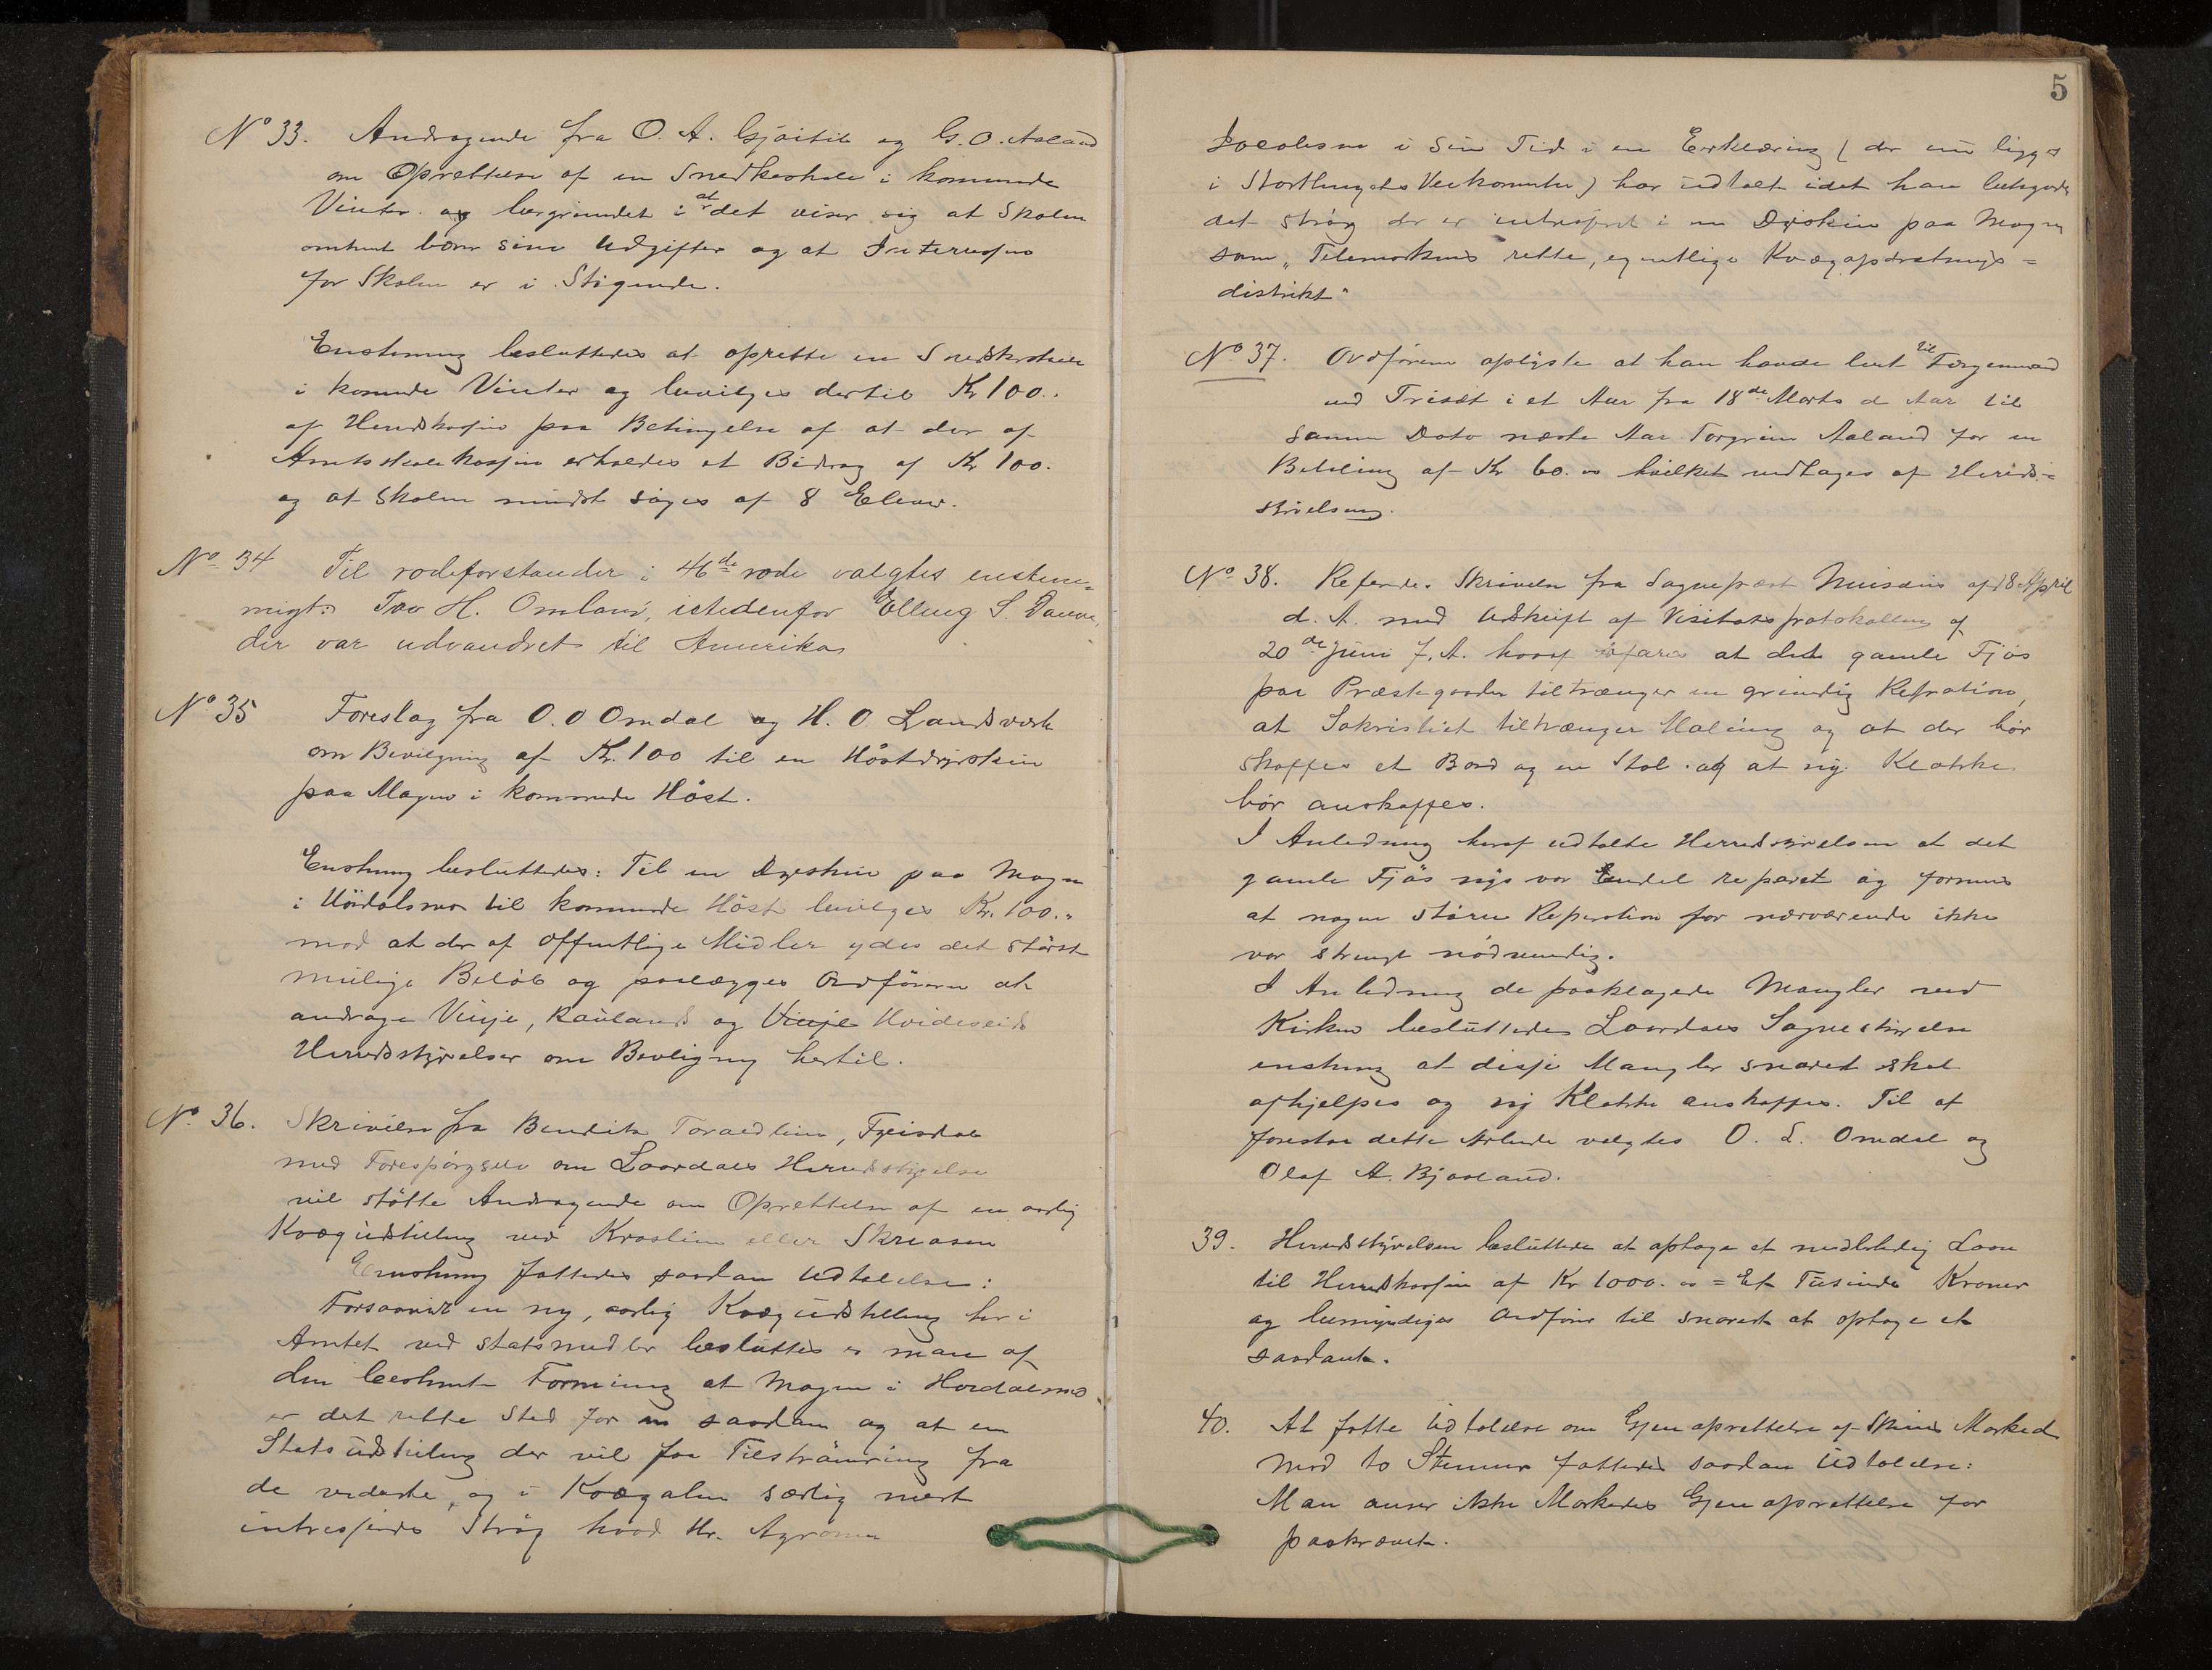 No 33. Andragende fra O. A. Gjøitil og G. O. Aaland
om Oprettelse af en Snedkerskole i kommende
Vinter og begrundet i at det viser sig at Skolen
omtrent bærer sine Udgifter og at Interessen
for Skolen er i Stigende.
Enstemmig besluttedes at oprette en Snedkerskole
i kommende Vinter og bevilges dertil Kr 100..
af Herredskassen paa Betingelse af at der af
Amtsskolekassen erholdes et Bidrag af Kr 100.
og at Skolen mindst søges af 8 Elever.
No 34 Til rodeforstander i 46de rode valgtes enstem=
migt: Tov H. Omland, istedenfor Elling S.
der var udvandret til Amerika
No 35 Foreslag fra O. O Omdal og H. O. Landsverk
om Bevilgning af Kr. 100 til en Höstdyrskue
paa Mogen i kommende Höst.
Enstemmig besluttedes: Til en Dyrskue paa Mogen
i Höidalsmo til kommende Höst bevilges Kr. 100.
mod at der af offentlige Midler ydes det störst
mulige Beløb og paalægges Ordføreren at
andrage Vinje, Raulands og Vinje Hvideseids
Herredsstyrelser om Bevilgning hertil.
No 36. Skrivelse fra Bendik Toraedlien, Fyrisdal
med Forespørgsel om Laardals Herredsstyrelse
vil støtte Andragende om Oprettelse af en aarlig
Kvægudstilling ved Kroslien eller Skreosen
Enstemmig fattedes saadan Udtalelse:
Forsaavidt en ny, aarlig Kvægudstilling her i
Amtet ved statsmidler besluttes er man af
den bestemte Formening at Mogen i Hoidalsmo
er det rette Sted for en saadan og at en
Statsudstilling der vil faa Tilstrømning fra
de vedeste, og i Kvægalen særlig mest
intresserede Strøg hvad Hr. Agronom
5
Jacobsen i sin Tid i en Erklæring (der nu ligger
i Storthingets Veikomite) har udtalt idet han betegnede
det strøg der er intresseret i en Dyrskue paa Mogen
som „Telemarkens rette, egentlige Kvægopdrætnings=
distrikt"
No 37. Ordføreren oplyste at han havde leiet til Færgemand
ved Triset i et Aar fra 18de Marts d Aar til
samme Dato næste Aar Torgrim Aaland for en
Betaling af Kr 60. oo hvilket vedtages af Herreds=
styrelsen.
No 38. Referert Skrivelse fra Sogneprest af 18 April
d. A. med Udskrift af Visitatsprotokollen af
20de Juni f. A. hvoraf erfares at det gamle Fjøs
paa Præstegaarden tiltrænger en grundig Repration,
at Sakristiet tiltrænger Maling og at der bør
skaffes et Bord og en Stol og at ny Klokke
bør anskaffes.
I Anledning heraf udtalte Herredsstyrelsen at det
gamle Fjøs nys var endel reparet og formenes
at nogen større Reparation for nærværende ikke
var strengt nødvendig.
I Anledning de paaklagede Mangler ved
Kirken besluttedes Laardals Sognestyrelse
enstemmig at disse Mangler snarest skal
afhjelpes og ny Klokke anskaffes. Til at
forestaa dette Arbeide valgtes O. L. Omdal og
Olaf A. Bjaaland.
39. Herredsstyrelsen besluttede at optage et midlertidig Laan
til Herredskassen af Kr 1000. oo = Et Tusinde Kroner
og bemyndiges Ordfører til snarest at optage et
saadant.
40. At fatte Udtalelse om Gjenoprettelse af Skiens Marked
Mod to Stemmer fattedes saadan Udtalelse:
Man anser ikke Markedes Gjenoprettelse for
paakrævet.